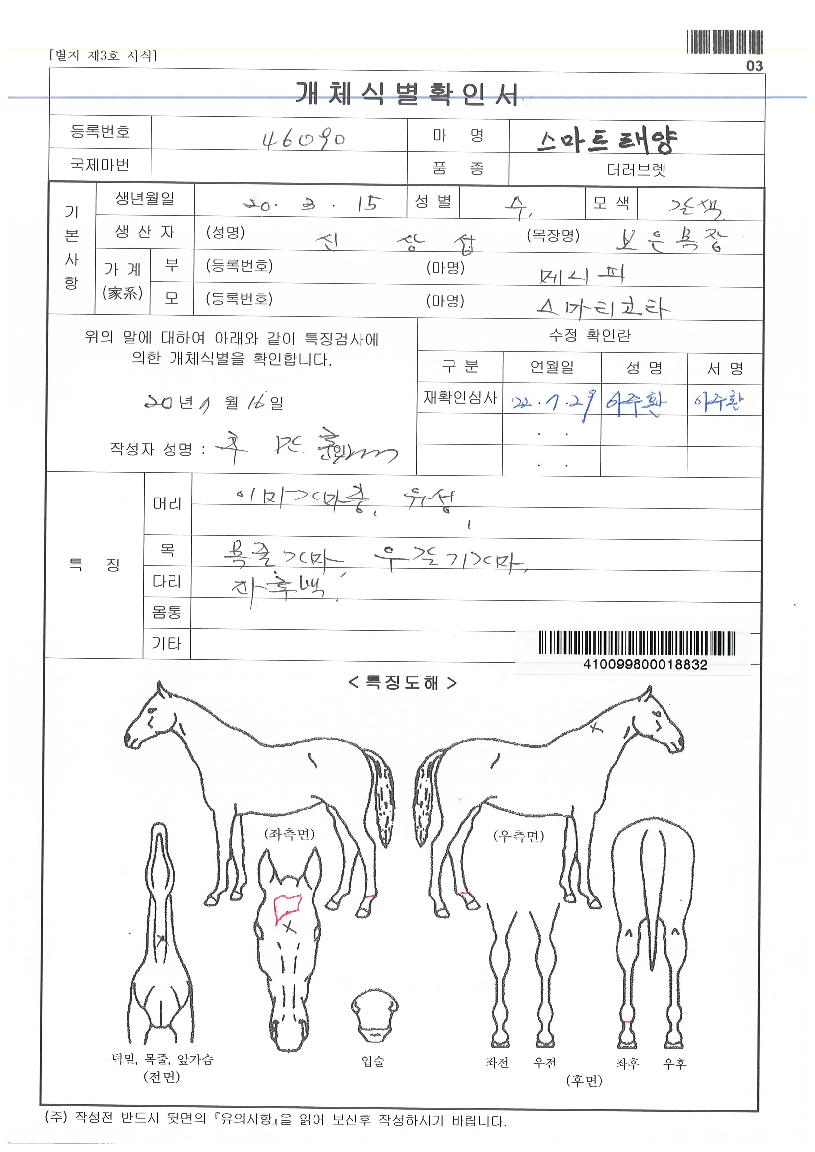 [별지 제3호 서식]
03
개체식별확인서
등록번호 46090 마 명 스마트태양
국제마번 품 종 더러브렛
기본사항
생년월일 20. 3. 15 성 별 수 모 색 갈색
생 산 자 (성명) 진 상 섭 (목장명) 보은목장
가 계 (家系)
부 (등록번호) (마명) 메니피
모 (등록번호) (마명) 스마티코타
위의 말에 대하여 아래와 같이 특징검사에
의한 개체식별을 확인합니다.
20년 월 16일
작성자 성명 : (인)
수정 확인란
구 분 연월일 성 명 서 명
재확인심사 '22. 7. 29 이주환 이주환
. .
. .
특 징
머리 이마가마중, 유성,
목 목줄가마, 우측기가마,
다리 좌후백.
몸통
기타
410099800018832
< 특징도해 >
(좌측면) (우측면)
턱밑, 목줄, 앞가슴
(전면)
입술
좌전 우전
좌후 우후
(후면)
(주) 작성전 반드시 뒷면의 『유의사항』을 읽어 보신후 작성하시기 바랍니다.